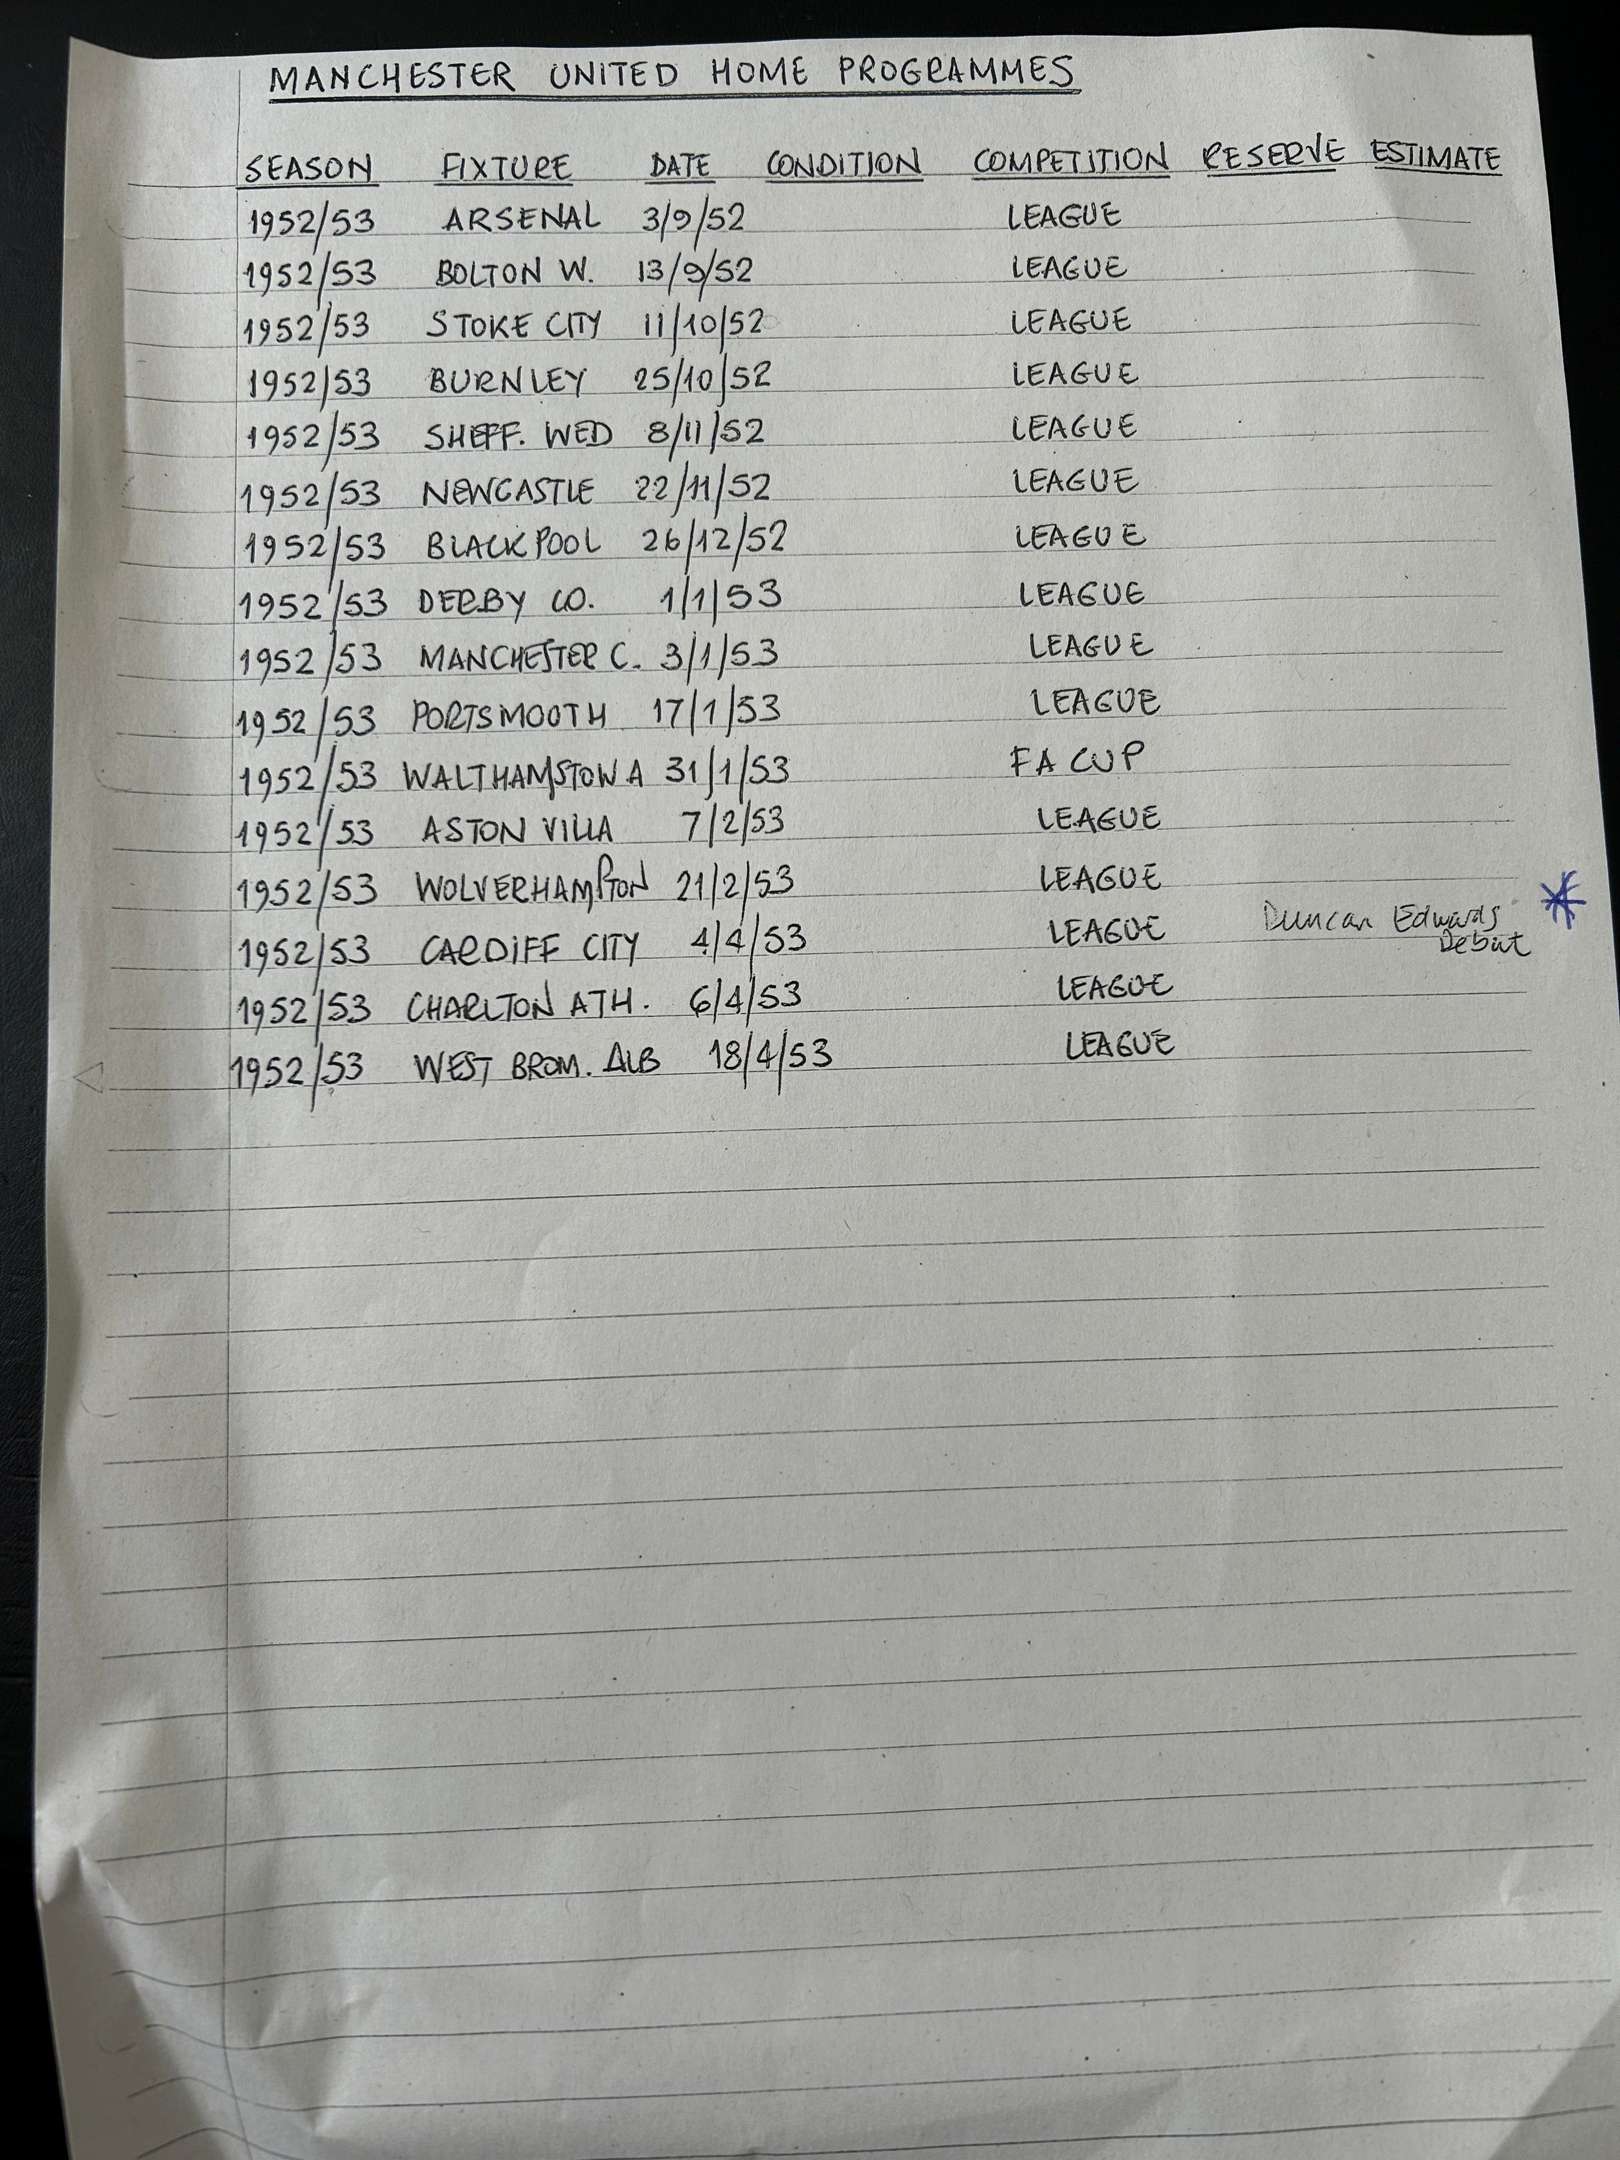 MANCHESTER UNITED HOME PROGRAMMES
SEASON FIXTURE DATE CONDITION COMPETITION RESERVE ESTIMATE
1952/53 ARSENAL 3/9/52 LEAGUE
1952/53 BOLTON W. 13/9/52 LEAGUE
1952/53 STOKE CITY 11/10/52 LEAGUE
1952/53 BURNLEY 25/10/52 LEAGUE
1952/53 SHEFF. WED 8/11/52 LEAGUE
1952/53 NEWCASTLE 22/11/52 LEAGUE
1952/53 BLACKPOOL 26/12/52 LEAGUE
1952/53 DERBY CO. 1/1/53 LEAGUE
1952/53 MANCHESTER C. 3/1/53 LEAGUE
1952/53 PORTSMOOTH 17/1/53 LEAGUE
1952/53 WALTHAMSTOW A 31/1/53 FA CUP
1952/53 ASTON VILLA 7/2/53 LEAGUE
1952/53 WOLVERHAMPTON 21/2/53 LEAGUE
1952/53 CARDIFF CITY 4/4/53 LEAGUE Duncan Edwards *
Debut
1952/53 CHARLTON ATH. 6/4/53 LEAGUE
1952/53 WEST BROM. ALB 18/4/53 LEAGUE